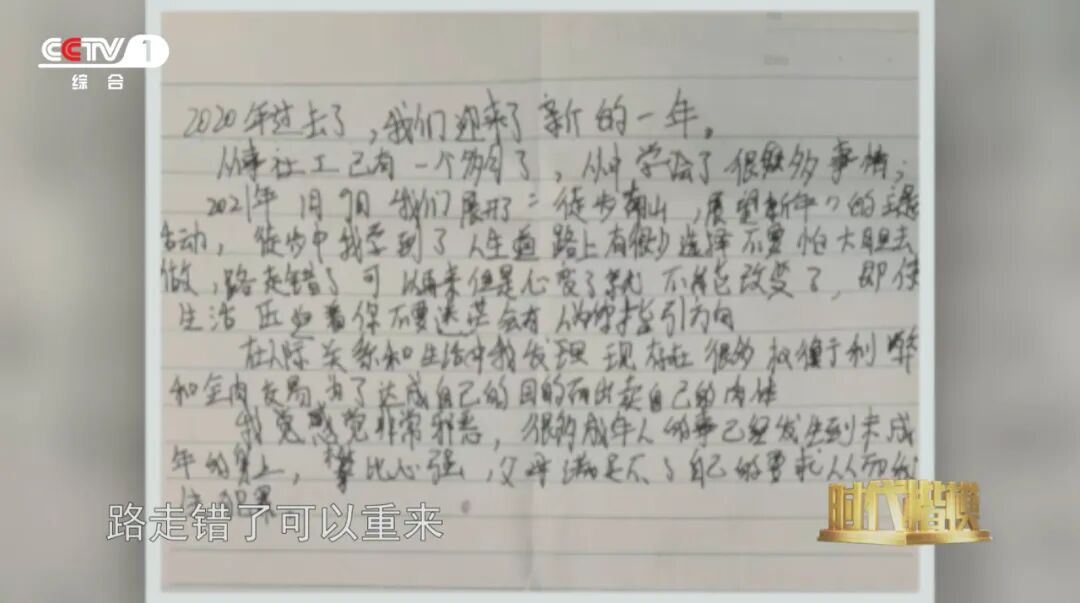 CCTV 1
综合
2020年过去了,我们迎来了新的一年。
从事社工已有一个多月了,从中学会了很多事情;
2021年1月9日我们展开了“徒步南山,展望新年”的主题
活动,徒步中我学到了人生道路上有很多选择不要怕大胆去
做,路走错了可以再来但是心变了就不能改变了,即使
生活压迫着你不要迷茫会有人为你指引方向
在人际关系和生活中我发现现存在很多权衡于利弊
和金肉交易为了达成自己的目的而出卖自己的肉体
我觉感觉非常邪恶,很多成年人的事已经发生到未成
年的身上,攀比心强,父母满足不了自己的要求从而
路走错了可以重来
时代楷模